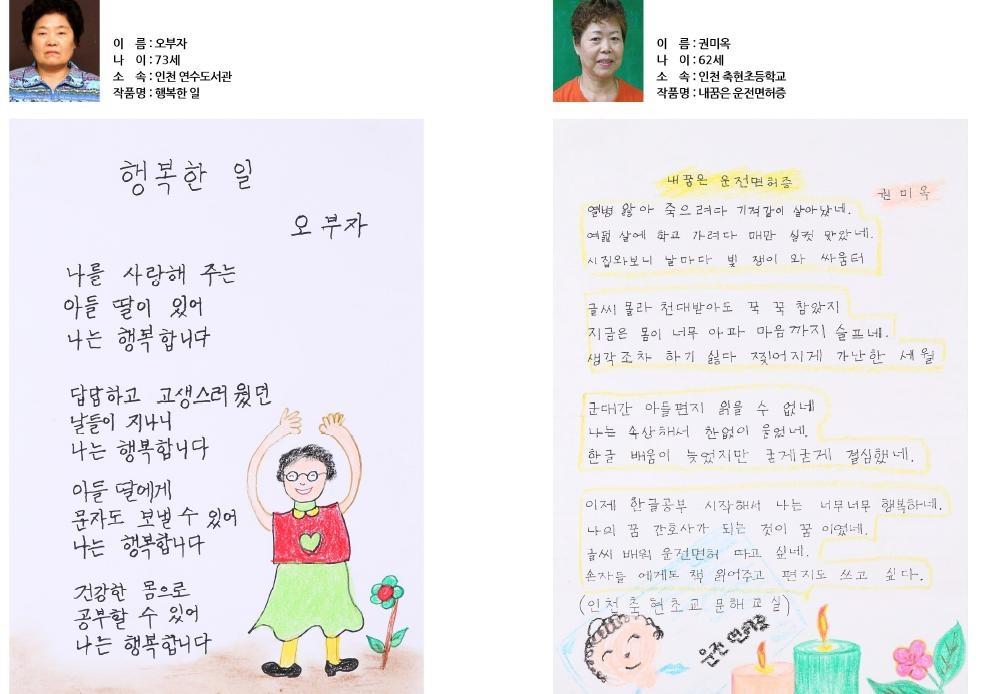 이 름 : 오부자
나 이 : 73세
소 속 : 인천 연수도서관
작품명 : 행복한 일
행복한 일
오부자
나를 사랑해 주는
아들 딸이 있어
나는 행복합니다
답답하고 고생스러웠던
날들이 지나니
나는 행복합니다
아들 딸에게
문자도 보낼 수 있어
나는 행복합니다
건강한 몸으로
공부할 수 있어
나는 행복합니다
이 름 : 권미옥
나 이 : 62세
소 속 : 인천 축현초등학교
작품명 : 내꿈은 운전면허증
내꿈은 운전면허증
권미옥
열병 앓아 죽으려다 기적같이 살아났네.
여덟 살에 학교 가려다 매만 실컷 맞았네.
시집와보니 날마다 빚 쟁이 와 싸움터
글씨 몰라 천대받아도 꾹 꾹 참았지
지금은 몸이 너무 아파 마음까지 슬프네.
생각조차 하기 싫다 찢어지게 가난한 세월
군대간 아들편지 읽을 수 없네
나는 속상해서 한없이 울었네.
한글 배움이 늦었지만 굳게굳게 결심했네.
이제 한글공부 시작해서 나는 너무너무 행복하네.
나의 꿈 간호사가 되는 것이 꿈 이였네.
글씨 배워 운전면허 따고 싶네.
손자들 에게도 책 읽어주고 편지도 쓰고 싶다.
(인천 축 현초교 문해교실)
운전 면허증